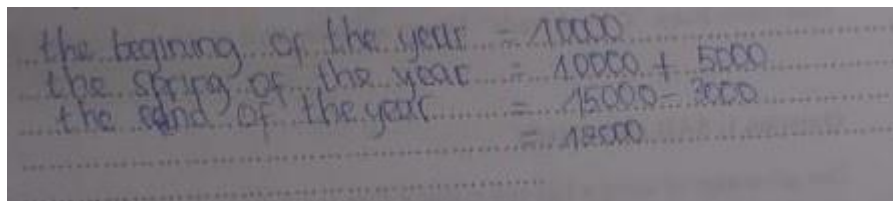 the begining of the year = 10000
the spring of the year = 10000 + 5000
the end of the year = 15000 - 3000
= 18000